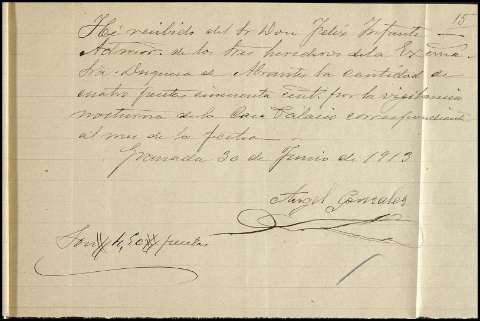 15
He recibido del Sr Don Felix Infante
Admor. de los tres herederos de la Exma
Sra. Duquesa de Abrantes la cantidad de
cuatro pesetas cincuenta cent. por la vigilancia
nocturna de la Casa Palacio correspondiente
al mes de la fecha
Granada 30 de Junio de 1913
Angel Gonzalez
Son 4,50 pesetas